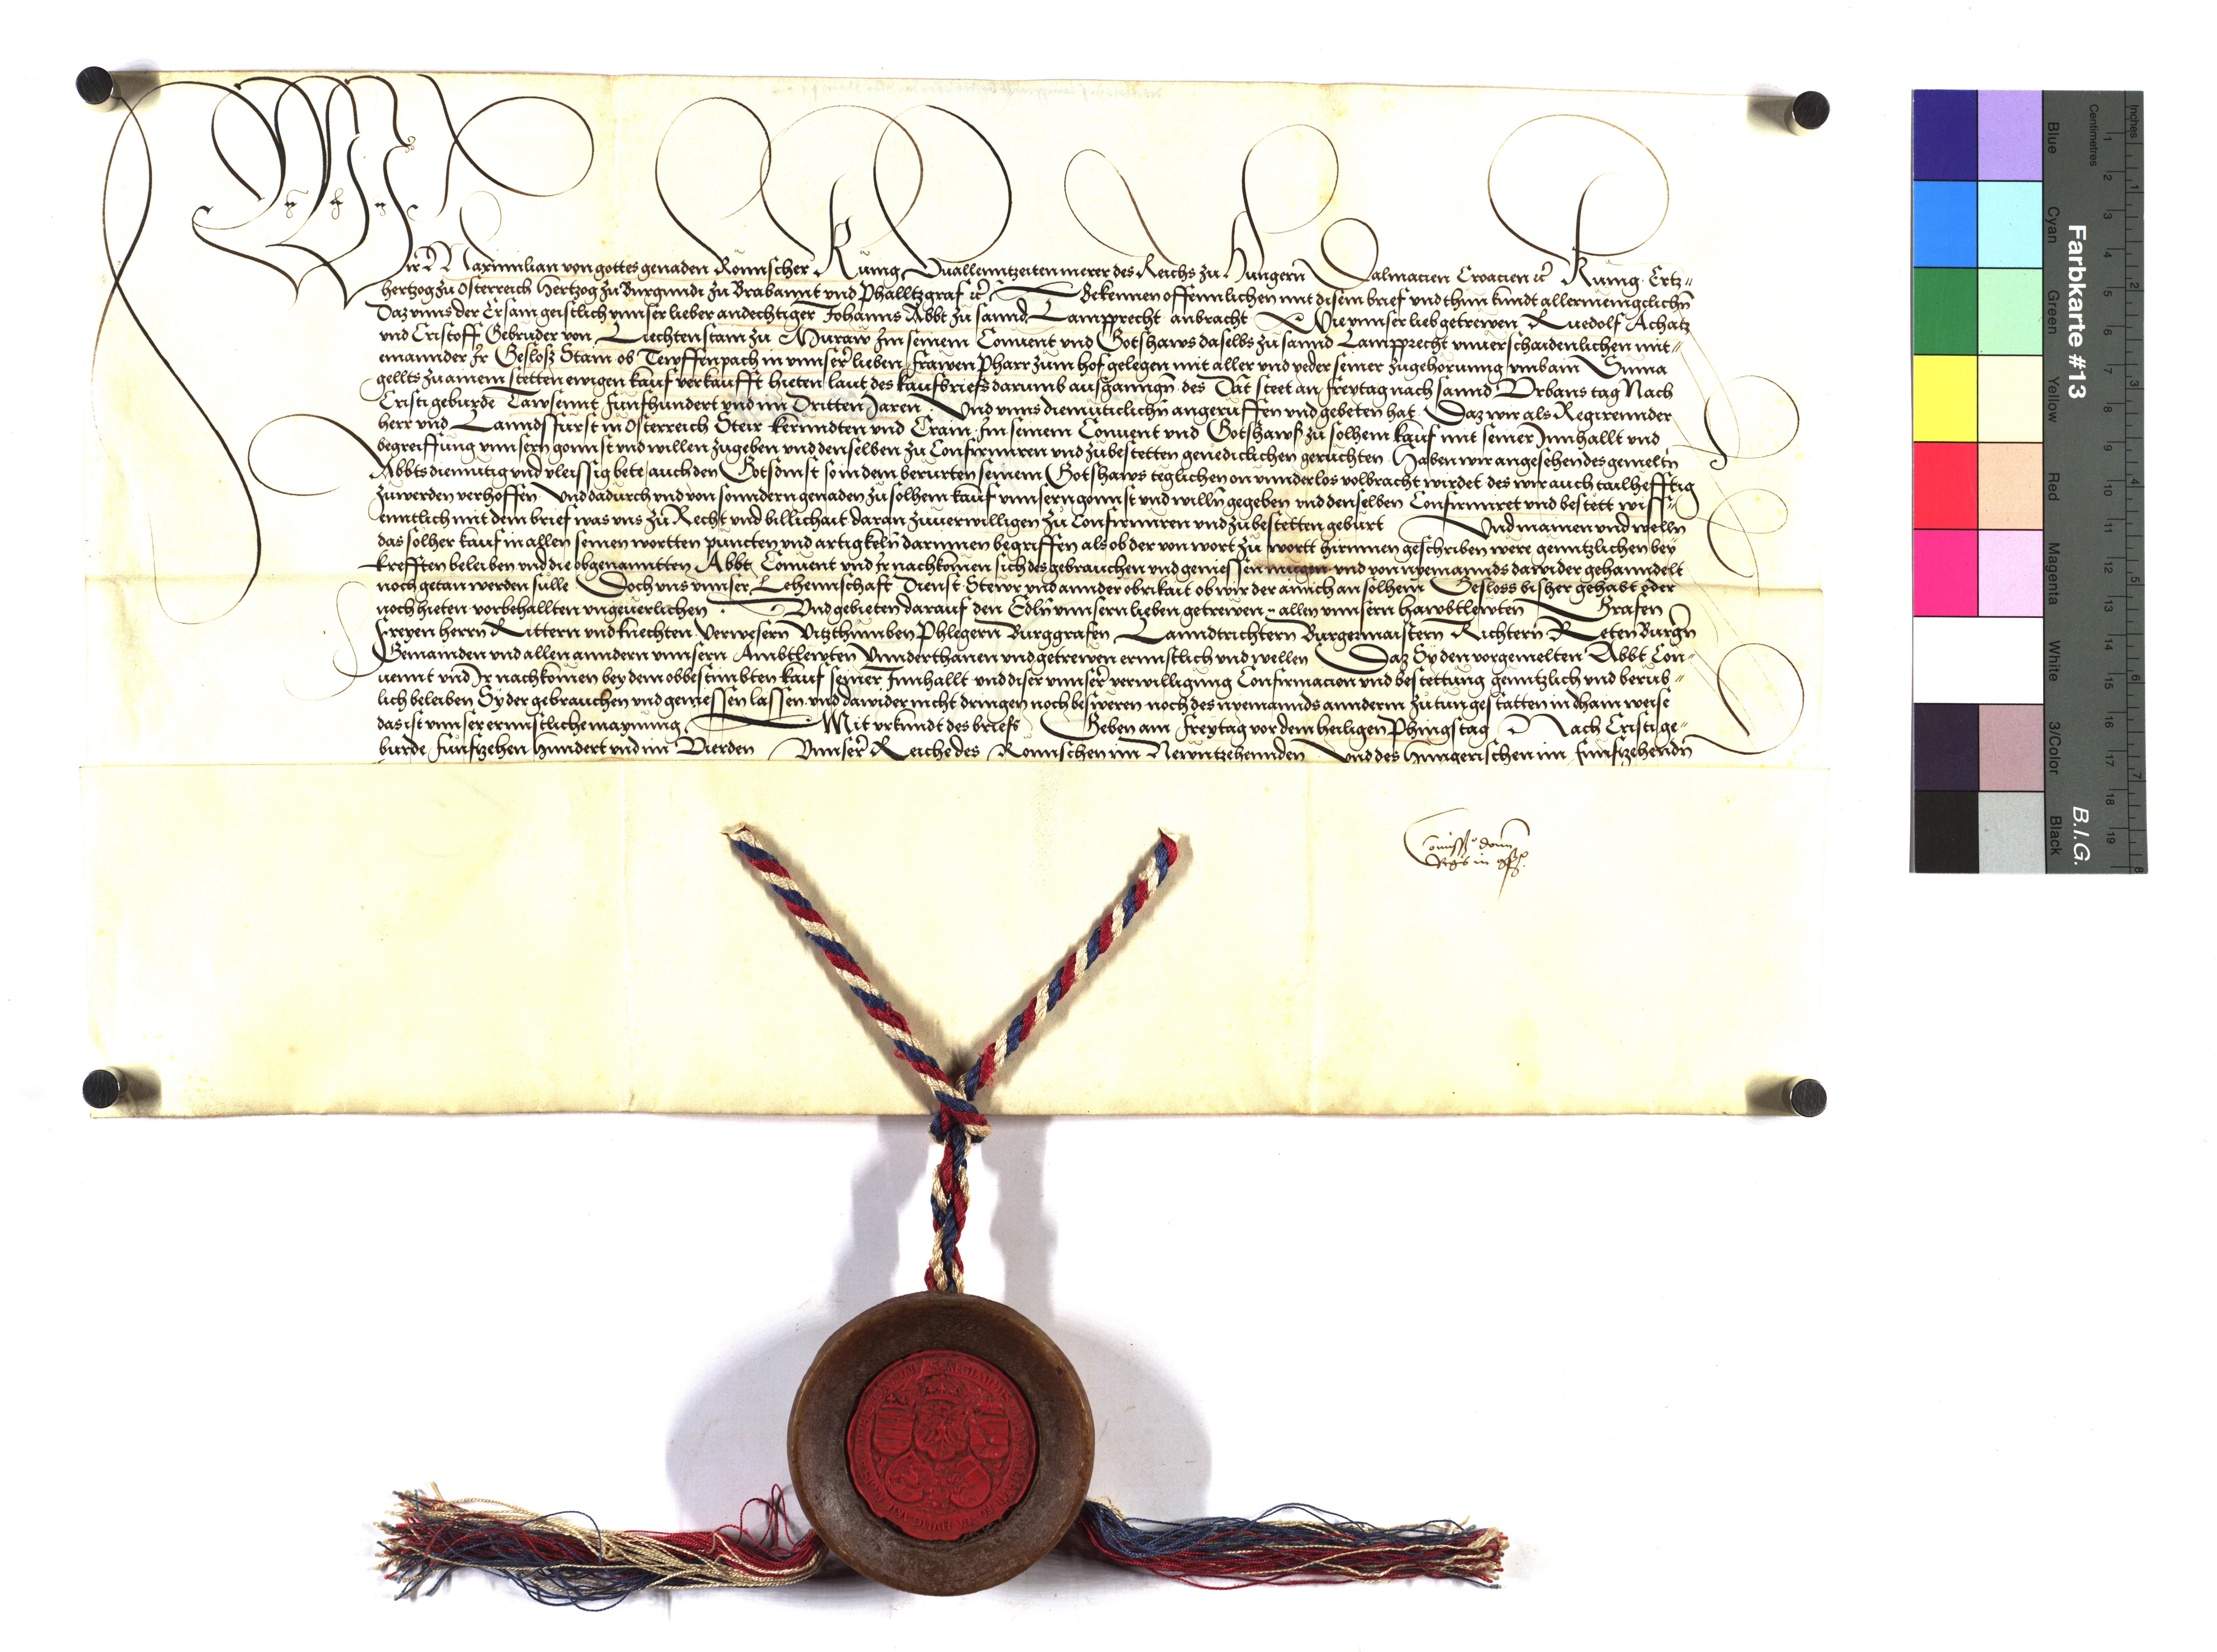 Wir Maximilian von gottes genaden Romischer Kunig zu allenntzeiten merer des Reichs zu Hungern Dalmacien Croacien ꝛc̃ Kunig Ertz-
hertzog zu Osterreich Hertzog zu Burgundi zu Brabannt vnd Phalltzgraf ꝛc̃ Bekennen offennlichen mit disem brief vnd thun kundt allermenigclichn
Daz vnns der Ersam geistlich vnnser lieber andechtiger Johanns Abbt zu sannd Lampprecht anbracht Wie vnnser lieb getrewen Ruedolf Achatz
vnd Cristoff Gebruder von Liechtenstain zu Muraw Im seinem Conuent vnd Gotshaws daselbs zu sannd Lampprecht vnuerschaidenlichen mit-
einannder Ir Gesloss Stain ob Tewffenpach in vnnser lieben frawen Pharr zum hof gelegen mit aller vnd yeder seiner zugehorunng vmb ain Suma
gellts zu ainem stetten ewigen kauf verkaufft hieten laut des kaufbriefs darumb ausganngn des Dat steet an freytag nach sannd Vrbans tag Nach
Cristi geburde Tawsennt funfhundert vnd im Dritten Jaren Vnd vnns diemuticlichn angeruffen vnd gebeten hat Daz wir als Regierennder
herr vnd Lanndsfurst in Osterreich Steir kernndten vnd Crain Im seinem Conuent vnd Gotshaws zu solhem kauf mit seiner Innhallt vnd
begreiffung vnnsern gonnst vnd willen zugeben vnd denselben zu Confirmiren vnd zubestetten genediclichen geruchten Haben wir angesehen des gemeltn
Abbts diemutig vnd vleissig bete auch den Gotsdinst so in dem berurten seinem Gotshaws teglichen on vnnderlos volbracht wirdet des wir auch tailhefftig
zuwerden verhoffen Vnd dadurch vnd von sonndern genaden zu solhem kauf vnnsern gonnst vnd willn gegeben vnd denselben Confirmiret vnd bestett wiss-
enntlich mit dem brief was vns zu Recht vnd billichait daran zuuerwilligen zu Confirmiren vnd zubestetten geburt Vnd mainen vnd welln
das solher kauf in allen seinen wortten puncten vnd artigkeln darinnen begriffen als ob der von wort zu wortt hirinnen geschriben were genntzlichen bey
krefften beleiben vnd die obgenannten Abbt Conuent vnd Ir nachkomen sich des gebrauchen vnd geniessen mugen vnd von nyemannds dawider gehanndelt
noch getan werden sulle Doch vns vnnser Lehennschaft Dienst Stewr vnd annder obrikait ob wir der ainich an solhem Gesloss bisher gehabt oder
noch hieten vorbehallten vngeuerlichen Vnd gebieten darauf den Edln vnnsern lieben getrewen allen vnnsern hawbtlewten Grafen
freyen herrn Rittern vnd knechten Verwesern Vitzthumben Phlegern Burggrafen Lanndtrichtern Burgermaistern Richtern Reten Burgn
Gemainden vnd allen anndern vnnsern Ambtlewten Vnnderthanen vnd getrewen ernnstlich vnd wellen Daz Sy den vorgemelten Abbt Con-
uennt vnd Ir nachkomen bey dem obbestimbten kauf seiner Innhallt vnd diser vnnser verwilligung Confirmacion vnd bestettung genntzlich vnd berub-
lich beleiben Sy der gebrauchen vnd geniessen lassen vnd dawider nicht dringen noch besweren noch des nyemannds annderm zutun gestatten in dhain weise
das ist vnnser ernnstliche maynung Mit vrkundt des briefs Geben am freytag vor dem heiligen Phingstag Nach Cristi ge-
burde funfzehenhundert vnd im Vierden Vnnser Reiche des Romischen im Newntzehennden Vnd des Hungerischen im funfzehendn
Comissio domi
Regis in 
Farbkarte #13
B.I.G.
Inches
Centimetres
Blue
Cyan
Green
Yellow
Red
Magenta
White
3/Color
Black
1 2 3 4 5 6 7 8 9 10 11 12 13 14 15 16 17 18 19
1 2 3 4 5 6 7 8